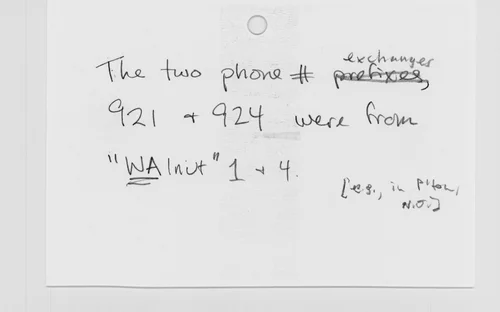 The two phone # exchanges
prefixes,
921 + 924 were from
"WAlnut" 1 + 4.
[e.g., in
N.O.]